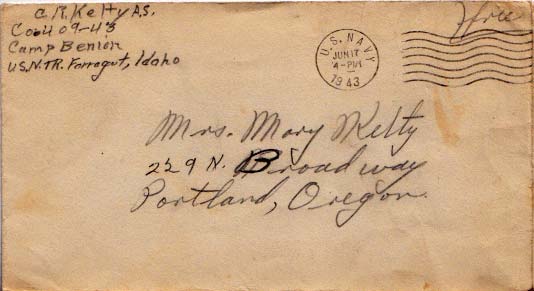 C.R. Kelty A.S.
Co 409-43
Camp Benion
U.S.N.TR. Farragut, Idaho
free
U.S. NAVY
JUN 17
4-PM
1943
Mrs. Mary Kelty
229 N. Broadway
Portland, Oregon.